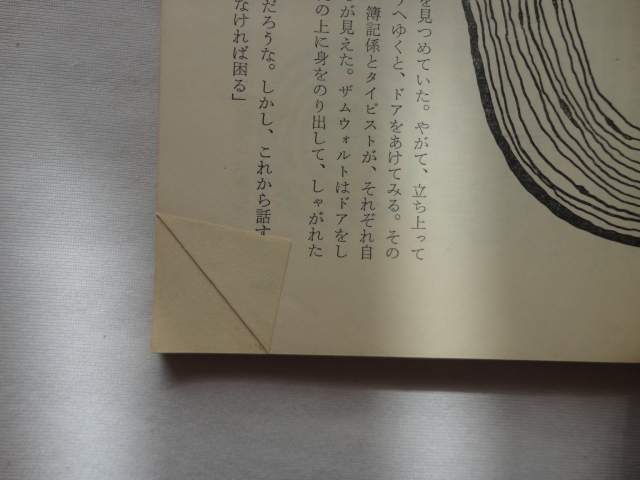 を見つめていた。やがて、立ち上って
へゆくと、ドアをあけてみる。その
簿記係とタイピストが、それぞれ自
が見えた。ザムウォルトはドアをし
の上に身をのり出して、しゃがれた
だろうな。しかし、これから話す
なければ困る」